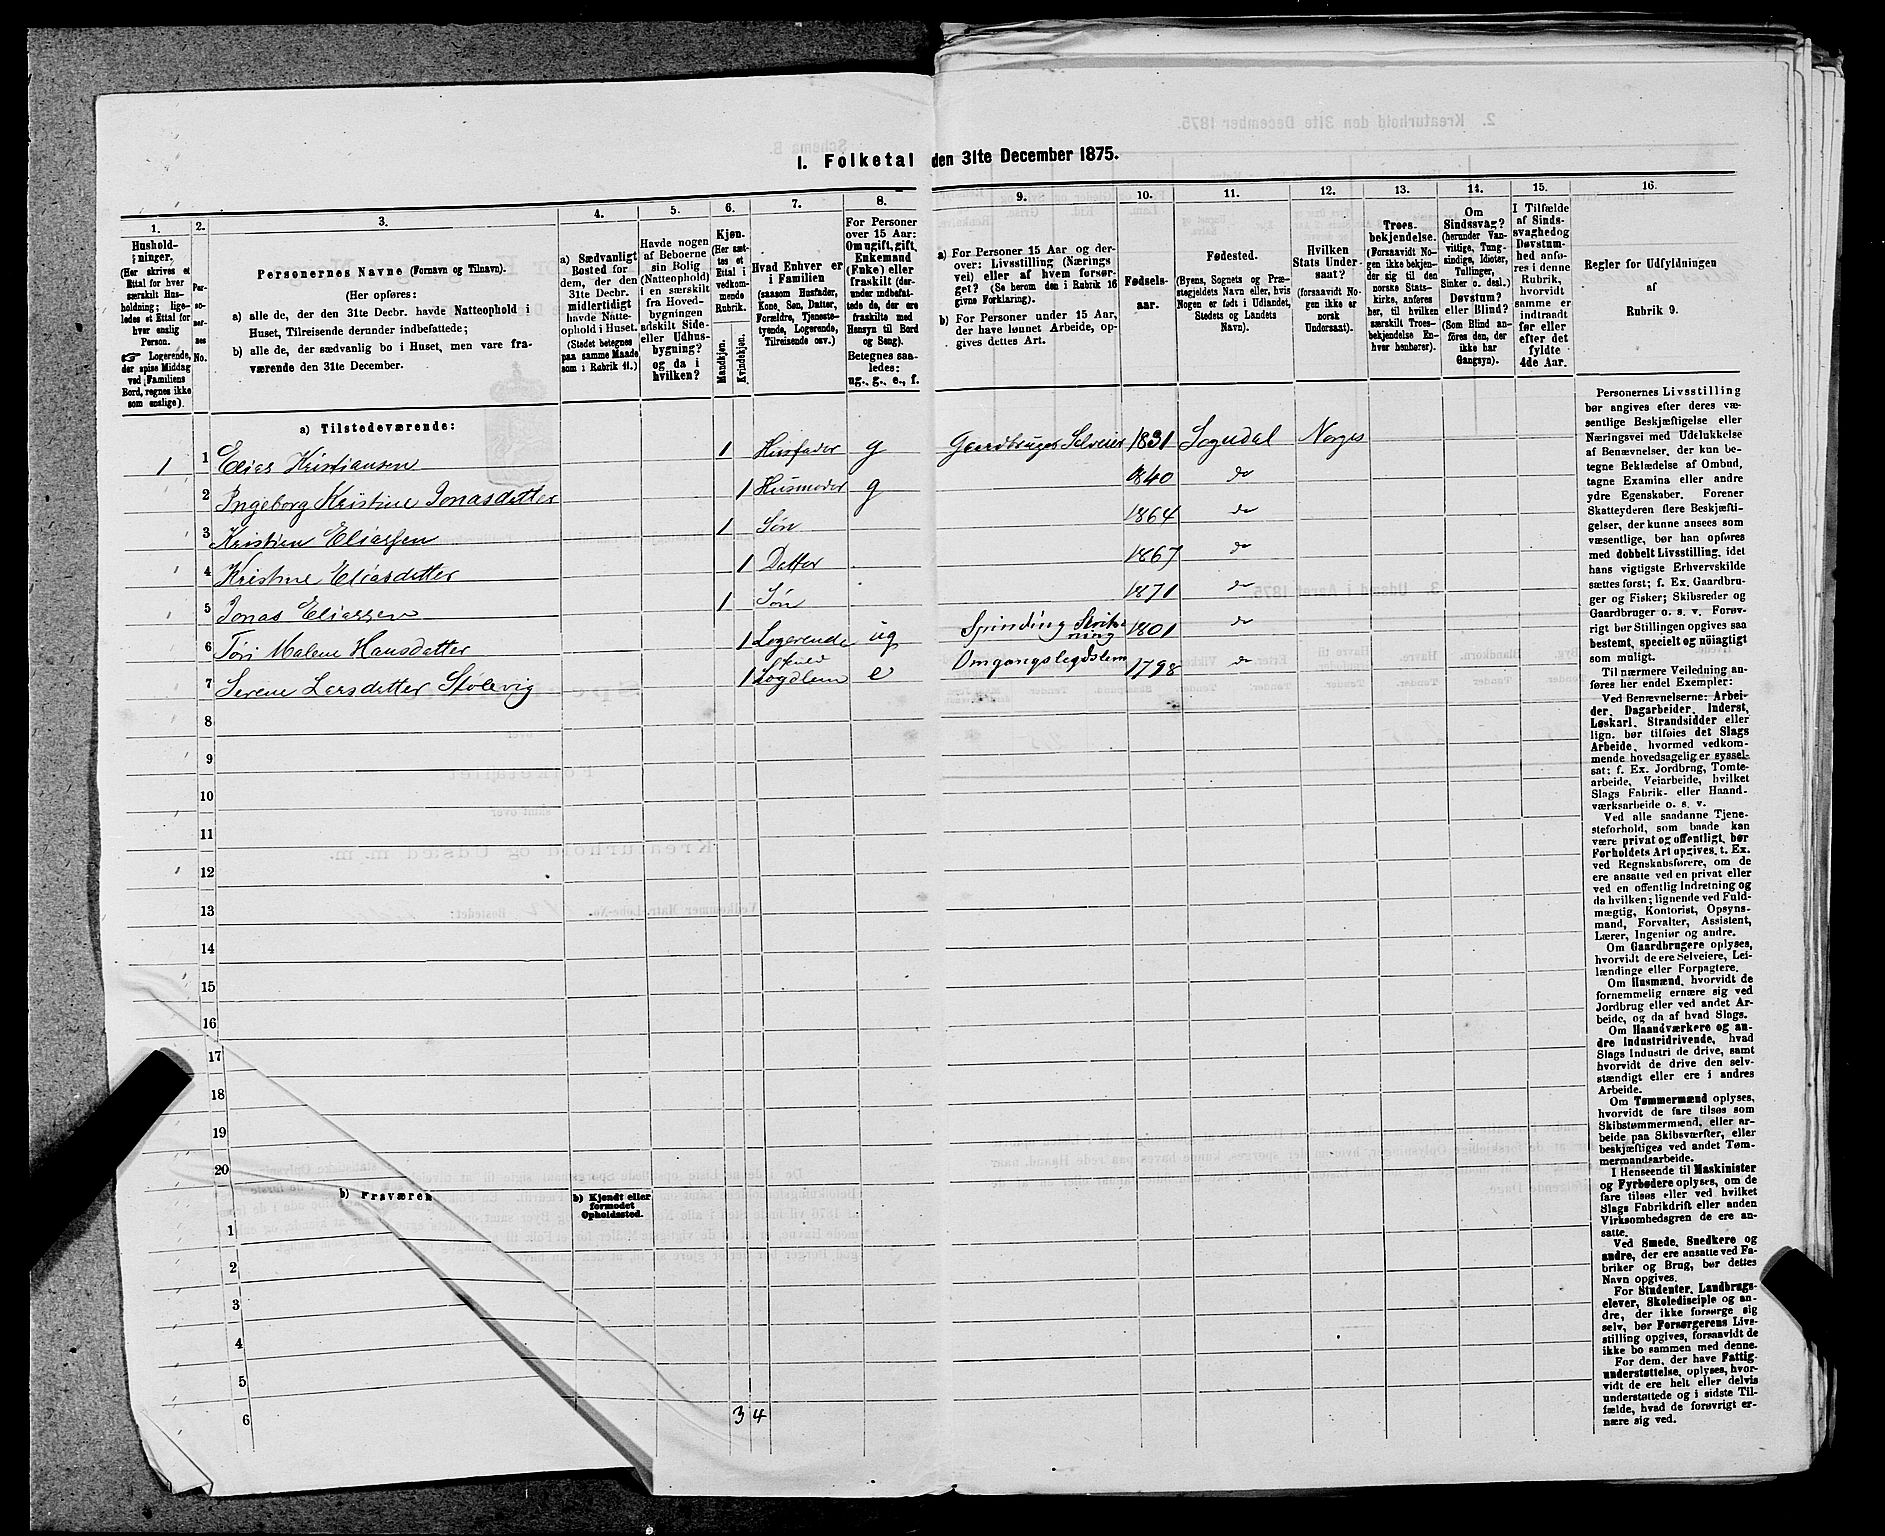 I. Folketal den 31te December 1875.
1. 2. 3. 4. 5. 6. 7. 8. 9. 10. 11. 12. 13. 14. 15. 16.
Hushold-
ninger.
(Her skrives et
Ettal for hver
særskilt Hus-
holdning; lige-
ledes et Ettal for
hver enslig
Person.
☞ Logerende,
der spise Middag
ved Familiens
Bord, regnes ikke
som enslige).
Per-
so-
ner-
nes
No.
Personernes Navne (Fornavn og Tilnavn).
(Her opføres:
a) alle de, der den 31te Decbr. havde Natteophold i
Huset, Tilreisende derunder indbefattede;
b) alle de, der sædvanlig bo i Huset, men vare fra-
værende den 31te December.
a) Sædvanligt
Bosted for
dem, der den
31te Decbr.
midlertidigt
havde Natte-
ophold i Huset.
(Stedet betegnes
paa samme Maade
som i Rubrik 11.)
Havde nogen
af Beboerne
sin Bolig
(Natteophold)
i en særskilt
fra Hoved-
bygningen
adskilt Side-
eller Udhus-
bygning?
og da i
hvilken?
Kjøn.
(Her sæt-
tes et
Ettal i
vedkom-
mende
Rubrik.
Mandkjøn.
Kvindekjøn.
Hvad Enhver er
i Familien
(saasom Husfader,
Kone, Søn, Datter,
Forældre, Tjeneste-
tyende, Logerende,
Tilreisende osv.)
For Personer
over 15 Aar:
Om ugift, gift,
Enkemand
(Enke) eller
fraskilt (der-
under indbefat-
tede de, der ere
fraskilte med
Hensyn til Bord
og Seng).
Betegnes saa-
ledes:
ug., g., e., f.
a) For Personer 15 Aar og der-
over: Livsstilling (Nærings
vei) eller af hvem forsør-
get? (Se herom den i Rubrik 16
givne Forklaring).
b) For Personer under 15 Aar,
der have lønnet Arbeide, op-
gives dettes Art.
Fødsels-
aar.
Fødested.
(Byens, Sognets og Præ-
stegjeldets Navn eller, hvis
Nogen er født i Udlandet,
Stedets og Landets
Navn).
Hvilken
Stats Under-
saat?
(forsaavidt No-
gen ikke er
norsk
Undersaat).
Troes-
bekjendelse.
(Forsaavidt No-
gen ikke bekjen-
der sig til den
norske Stats-
kirke, anføres
her, til hvilken
særskilt Troes-
bekjendelse En-
hver henhører).
Om
Sindssvag?
(herunder Van-
vittige, Tung-
sindige, Idioter,
Tullinger,
Sinker o. desl.)
Døvstum?
eller Blind?
(Som Blind an-
føres den, der
ikke har
Gangsyn).
I Tilfælde
af Sinds-
svaghed og
Døvstum-
hed anfø-
res i denne
Rubrik,
hvorvidt
samme er
indtraadt
før eller
efter det
fyldte
4de Aar.
Regler for Udfyldningen
af
Rubrik 9.
a) Tilstedeværende:
1 1 Elias Kristiansen 1 Husfader g Gaardbruger Selveier 1831 Sogndal Norges
2 Ingeborg Kristine Jonasdatter 1 Husmoder g 1840 do
3 Kristian Eliassen 1 Søn 1864 do
4 Kristine Eliasdatter 1 Datter 1867 do
5 Jonas Eliassen 1 Søn 1871 do
6 Tori Malene Hansdatter 1 Logerende ug Spinding 1801 do
7 Serene Larsdatter Stolevig 1 Lægdlem e Omgangslegdslem 1798 do
8
9
10
11
12
13
14
15
16
17
18
19
20
b) Fraværen
b) Kjendt eller
formodet
Opholdssted.
1
2
3
4
5
6 3 4
Personernes Livsstilling
bør angives efter deres væ-
sentlige Beskjæftigelse eller
Næringsvei med Udelukkelse
af Benævnelser, der kun be-
tegne Beklædelse af Ombud,
tagne Examina eller andre
ydre Egenskaber. Forener
Skatteyderen flere Beskjæfti-
gelser, der kunne ansees som
væsentlige, bør han opføres
med dobbelt Livsstilling, idet
hans vigtigste Erhvervskilde
sættes først; f. Ex. Gaardbru-
ger og Fisker; Skibsreder og
Gaardbruger o. s. v. Forøv-
rigt bør Stillingen opgives saa
bestemt, specielt og nöiagtigt
som muligt.
Til nærmere Veiledning an-
føres her endel Exempler:
Ved Benævnelserne: Arbei-
der, Dagarbeider, Inderst,
Løskarl, Strandsidder eller
lign. bør tilføies det Slags
Arbeide, hvormed vedkom-
mende hovedsagelig er syssel-
sat; f. Ex. Jordbrug, Tomte-
arbeide, Veiarbeide, hvilket
Slags Fabrik- eller Haand-
værksarbeide o. s. v.
Ved alle saadanne Tjene-
steforhold, som baade kan
være privat og offentligt, bør
Forholdets Art opgives, t. Ex.
ved Regnskabsførere, om de
ere ansatte ved en privat eller
ved en offentlig Indretning og
da hvilken; lignende ved Fuld-
mægtig, Kontorist, Opsyns-
mand, Forvalter, Assistent,
Lærer, Ingeniør og andre.
Om Gaardbrugere oplyses,
hvorvidt de ere Selveiere, Lei-
lændinge eller Forpagtere.
Om Husmænd, hvorvidt de
fornemmelig ernære sig ved
Jordbrug eller ved andet Ar-
beide, og da af hvad Slags.
Om Haandværkere og an-
dre Industridrivende, hvad
Slags Industri de drive, samt
hvorvidt de drive den selv-
stændigt eller ere i andres
Arbeide.
Om Tømmermænd oplyses,
hvorvidt de fare tilsøs som
Skibstømmermænd, eller ar-
beide paa Skibsværfter, eller
beskjæftiges ved andet Tøm-
mermandsarbeide.
I Henseende til Maskinister
og Fyrbødere oplyses, om de
fare tilsøs eller ved hvilket
Slags Fabrikdrift eller anden
Virksomhedsgren de ere an-
satte.
Ved Smede, Snedkere og
andre, der ere ansatte ved Fa-
briker og Brug, bør dettes
Navn opgives.
For Studenter, Landbrugs-
elever, Skoledisciple og an-
dre, der ikke forsørge sig
selv, bør Forsørgerens Livs-
stilling opgives, forsaavidt de
ikke bo sammen med denne.
For dem, der have Fattig-
understøttelse, oplyses, hvor-
vidt de ere helt eller delvis
understøttede og i sidste Til-
fælde, hvad de forøvrigt er-
nære sig ved.